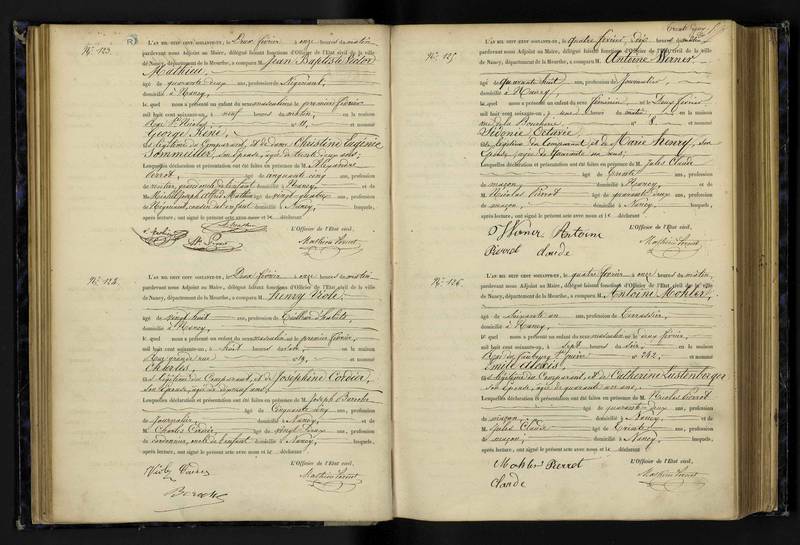 N° 123.
L'AN MIL HUIT CENT SOIXANTE-UN, le Deux février à onze heures du matin,
pardevant nous Adjoint au Maire, délégué faisant fonctions d'Officier de l'Etat civil de la ville
de Nancy, département de la Meurthe, a comparu M. Jean Baptiste Victor
Mathieu,
âgé de quarante deux ans, profession de Négociant,
domicilié à Nancy,
lequel nous a présenté un enfant du sexe masculin né le premier février
mil huit cent soixante-un, à neuf heures du matin, en la maison
n° 11, et nommé
George René,
fils légitime du Comparant, et de dame Christine Eugénie
son épouse, âgée de trente deux ans;
Lesquelles déclaration et présentation ont été faites en présence de M. Alexandre
Pierrot, âgé de cinquante cinq ans, profession
de domicilié à Nancy, et de
M. Joseph Alfred Mathieu âgé de vingt quatre ans, profession
de Négociant, cousin de l'enfant domicilié à Nancy, lesquels,
après lecture, ont signé le présent acte avec nous et le déclarant
L'Officier de l'Etat civil,
N° 124.
L'AN MIL HUIT CENT SOIXANTE-UN, le Deux février à onze heures du matin,
pardevant nous Adjoint au Maire, délégué faisant fonctions d'Officier de l'Etat civil de la ville
de Nancy, département de la Meurthe, a comparu M. Henry Viole,
âgé de vingt huit ans, profession de Tailleur d'habits,
domicilié à Nancy,
lequel nous a présenté un enfant du sexe masculin né le premier février,
mil huit cent soixante-un, à huit heures du matin, en la maison
Rue grande rue n° 19, et nommé
Charles,
fils légitime du Comparant, et de Joséphine Cordier,
son épouse, âgée de vingt neuf ans;
Lesquelles déclaration et présentation ont été faites en présence de M. Joseph
âgé de Cinquante cinq ans, profession
de Journalier, domicilié à Nancy, et de
M. Charles Cordier âgé de vingt deux ans, profession
de cordonnier, oncle de l'enfant domicilié à Nancy, lesquels,
après lecture, ont signé le présent acte avec nous et le déclarant
L'Officier de l'Etat civil,
N° 125.
L'AN MIL HUIT CENT SOIXANTE-UN, le quatre février, dix heures du matin
pardevant nous Adjoint au Maire, délégué faisant fonctions d'Officier de l'Etat civil de la ville
de Nancy, département de la Meurthe, a comparu M. Antoine Verner,
âgé de quarante huit ans, profession de Journalier,
domicilié à Nancy,
lequel nous a présenté un enfant du sexe féminin né le Deux février
mil huit cent soixante-un, à une heure du matin, en la maison
rue de la Boucherie, n° 8 et nommé
Sidonie Octavie,
fille légitime du Comparant et de Marie Henry, son
épouse, âgée de quarante un ans;
Lesquelles déclaration et présentation ont été faites en présence de M. Jules Claude
âgé de Trente ans, profession
de maçon, domicilié à Nancy, et de
M. Nicolas Pierrot âgé de quarante deux ans, profession
de maçon, domicilié à Nancy, lesquels,
après lecture, ont signé le présent acte avec nous et le déclarant
L'Officier de l'Etat civil,
Verner Antoine
Pierrot Claude
N° 126.
L'AN MIL HUIT CENT SOIXANTE-UN, le quatre février à onze heures du matin,
pardevant nous Adjoint au Maire, délégué faisant fonctions d'Officier de l'Etat civil de la ville
de Nancy, département de la Meurthe, a comparu M. Antoine Mohler,
âgé de soixante un ans, profession de Terrassier,
domicilié à Nancy,
lequel nous a présenté un enfant du sexe masculin né le deux février,
mil huit cent soixante-un, à sept heures du soir, en la maison
Rue du faubourg St Pierre n° 242, et nommé
Emile Alexis,
fils légitime du Comparant, et de Catherine Lustenberger
son épouse, âgée de quarante un ans,
Lesquelles déclaration et présentation ont été faites en présence de M. Nicolas Pierrot
âgé de quarante deux ans, profession
de maçon, domicilié à Nancy, et de
M. Jules Claude âgé de Trente ans, profession
de maçon, domicilié à Nancy, lesquels,
après lecture, ont signé le présent acte avec nous et le déclarant
L'Officier de l'Etat civil,
Mohler Pierrot
Claude